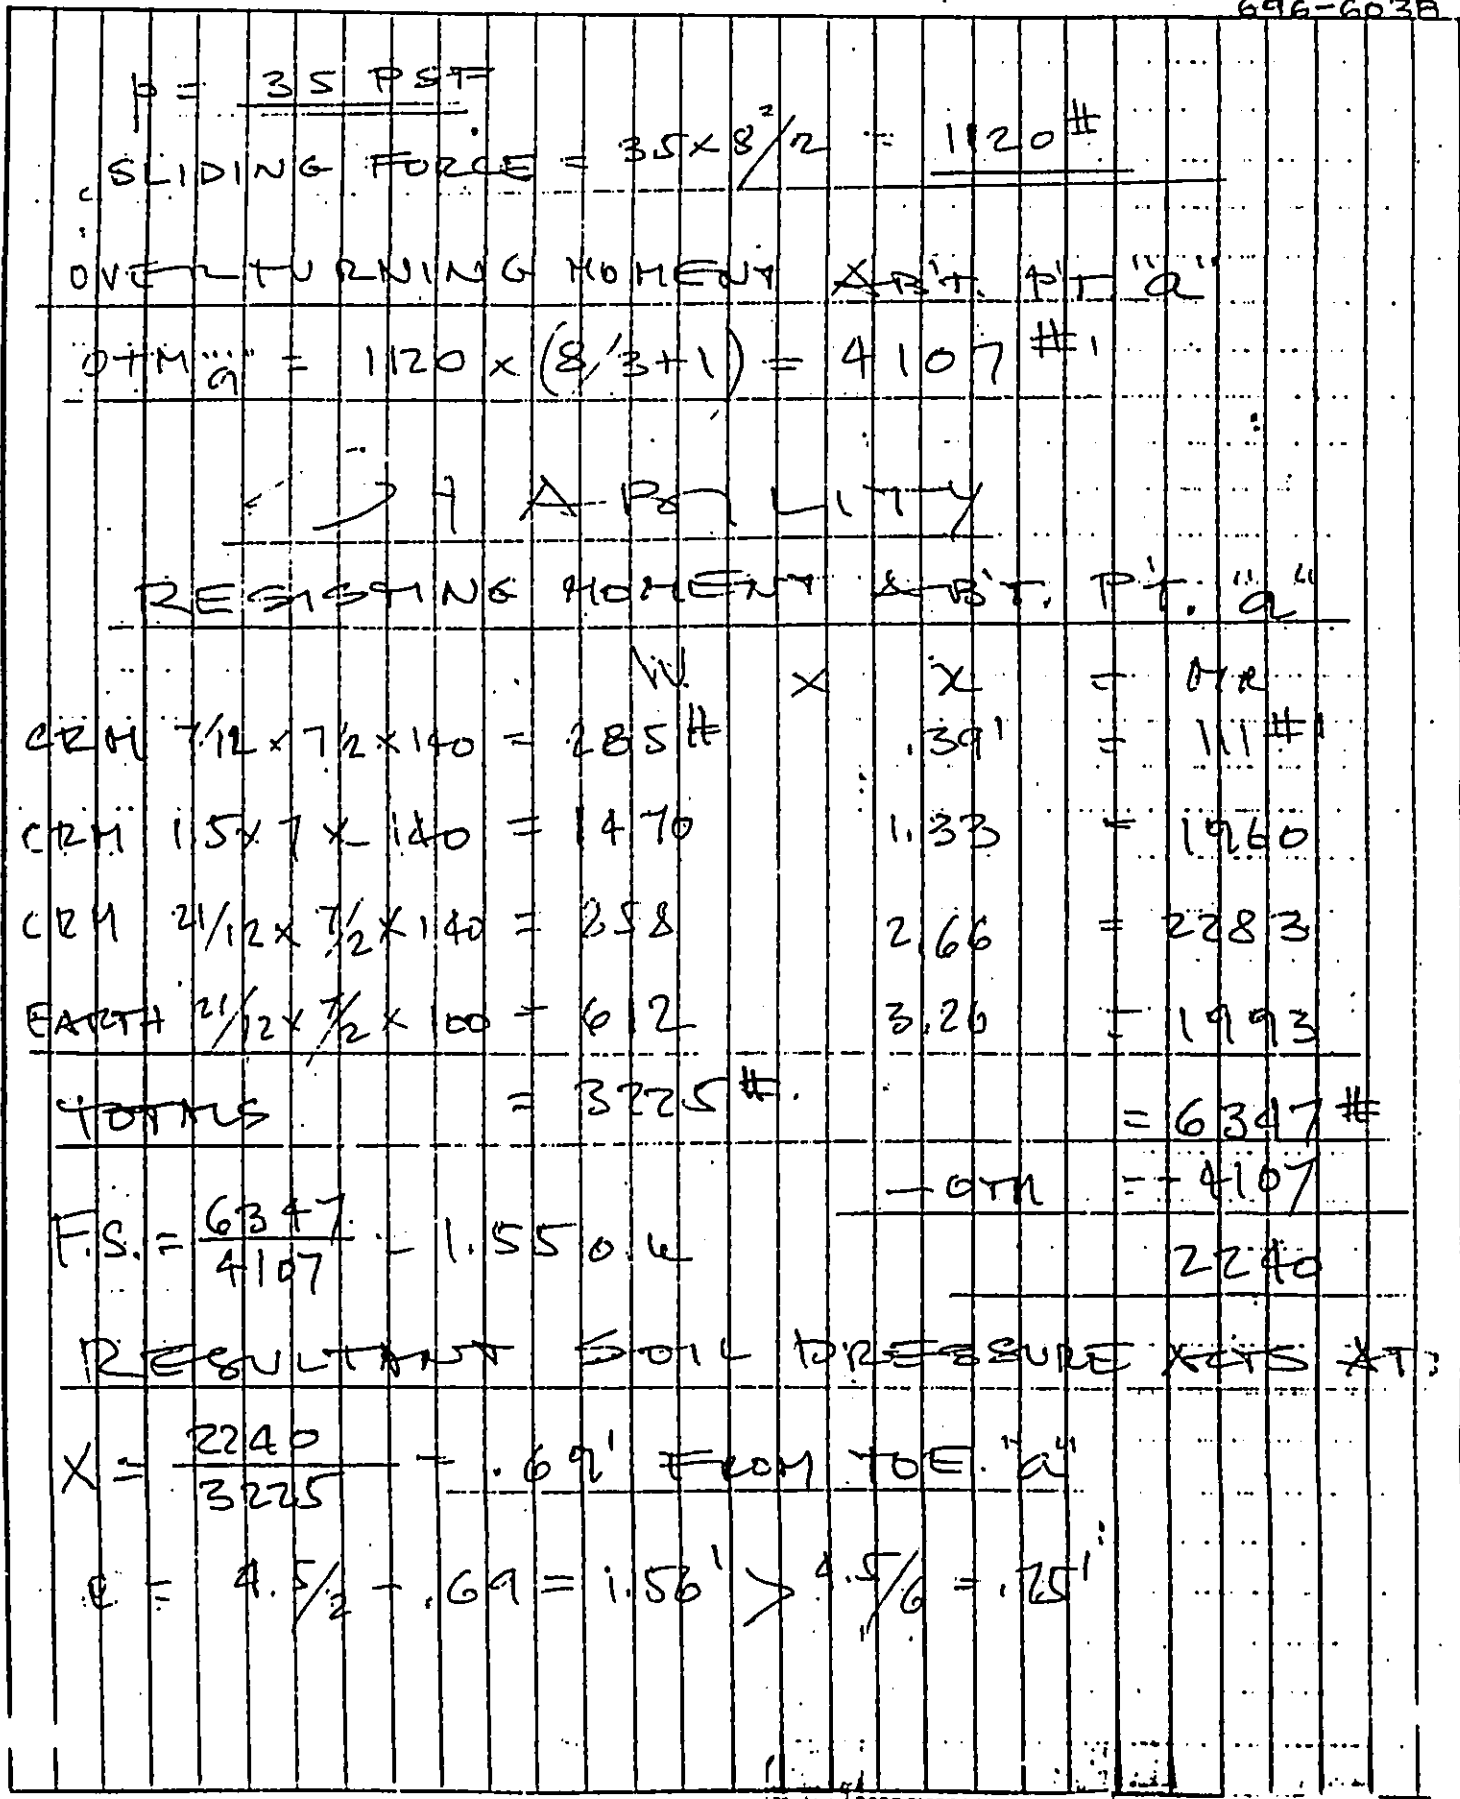 696-6038
p = 35 PSF
SLIDING FORCE = 35 x 8²/2 = 1120#
OVERTURNING MOMENT ABT. PT. "a"
OTM "a" = 1120 x (8/3+1) = 4107 #'
STABILITY
RESISTING MOMENT ABT. PT. "a"
W x x = MR
CRM 7/12 x 7/2 x 140 = 285# .39' = 111#'
CRM 1.5 x 7 x 140 = 1470 1.33 = 1960
CRM 21/12 x 7/2 x 140 = 858 2.66 = 2283
EARTH 21/12 x 7/2 x 100 = 612 3.26 = 1993
TOTALS = 3225#. = 6347#
- OTM = - 4107
F.S. = 6347/4107 = 1.55 o.k 2240
RESULTANT SOIL PRESSURE ACTS AT:
X = 2240/3225 = .69' FROM TOE "a"
e = 4.5/2 - .69 = 1.56' > 4.5/6 = .75'